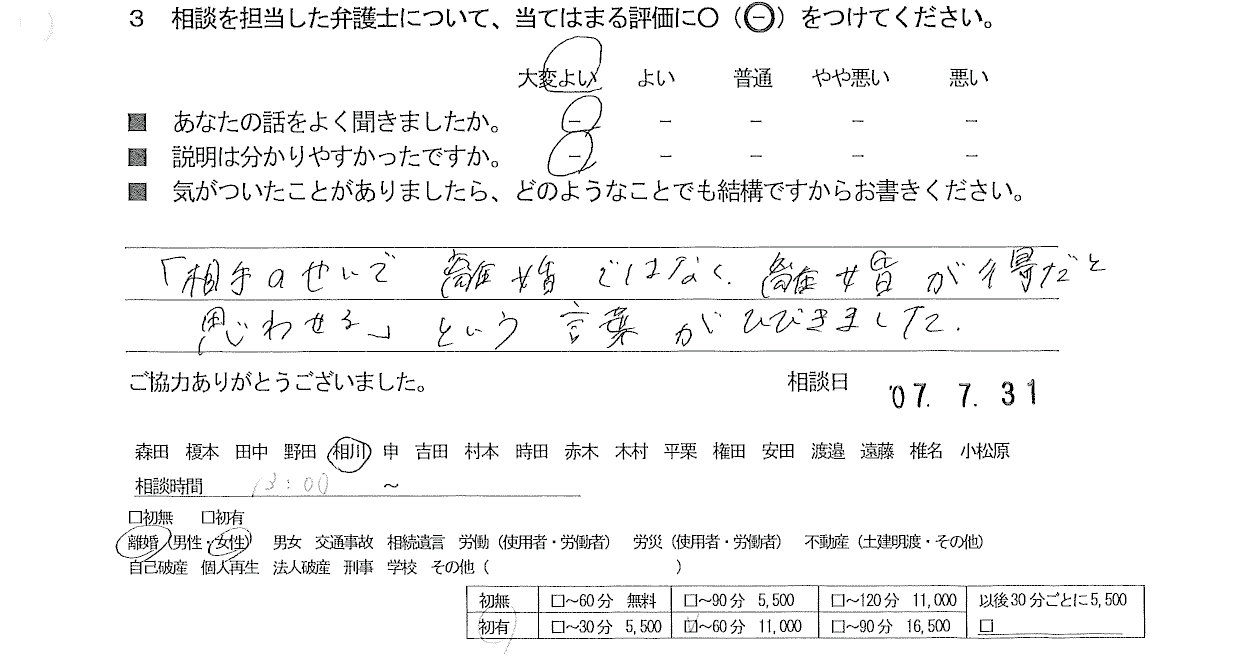 3 相談を担当した弁護士について、当てはまる評価に〇（⊖）をつけてください。
大変よい よい 普通 やや悪い 悪い
■ あなたの話をよく聞きましたか。 － － － － －
■ 説明は分かりやすかったですか。 － － － － －
■ 気がついたことがありましたら、どのようなことでも結構ですからお書きください。
「相手のせいで 離婚ではなく、離婚が得だと
思わせる」という言葉がひびきました。
ご協力ありがとうございました。 相談日 '07. 7. 31
森田 榎本 田中 野田 相川 申 吉田 村本 時田 赤木 木村 平栗 権田 安田 渡邉 遠藤 椎名 小松原
相談時間 13:00 ～
□初無 □初有
離婚（男性・女性） 男女 交通事故 相続遺言 労働（使用者・労働者） 労災（使用者・労働者） 不動産（土建明渡・その他）
自己破産 個人再生 法人破産 刑事 学校 その他（ ）
初無 □～60分 無料 □～90分 5,500 □～120分 11,000 以後30分ごとに5,500
初有 □～30分 5,500 □～60分 11,000 □～90分 16,500 □